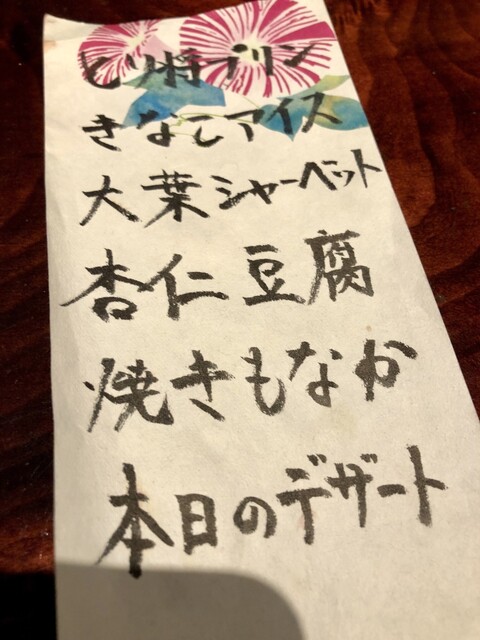 とり将プリン
きなこアイス
大葉シャーベット
杏仁豆腐
焼きもなか
本日のデザート